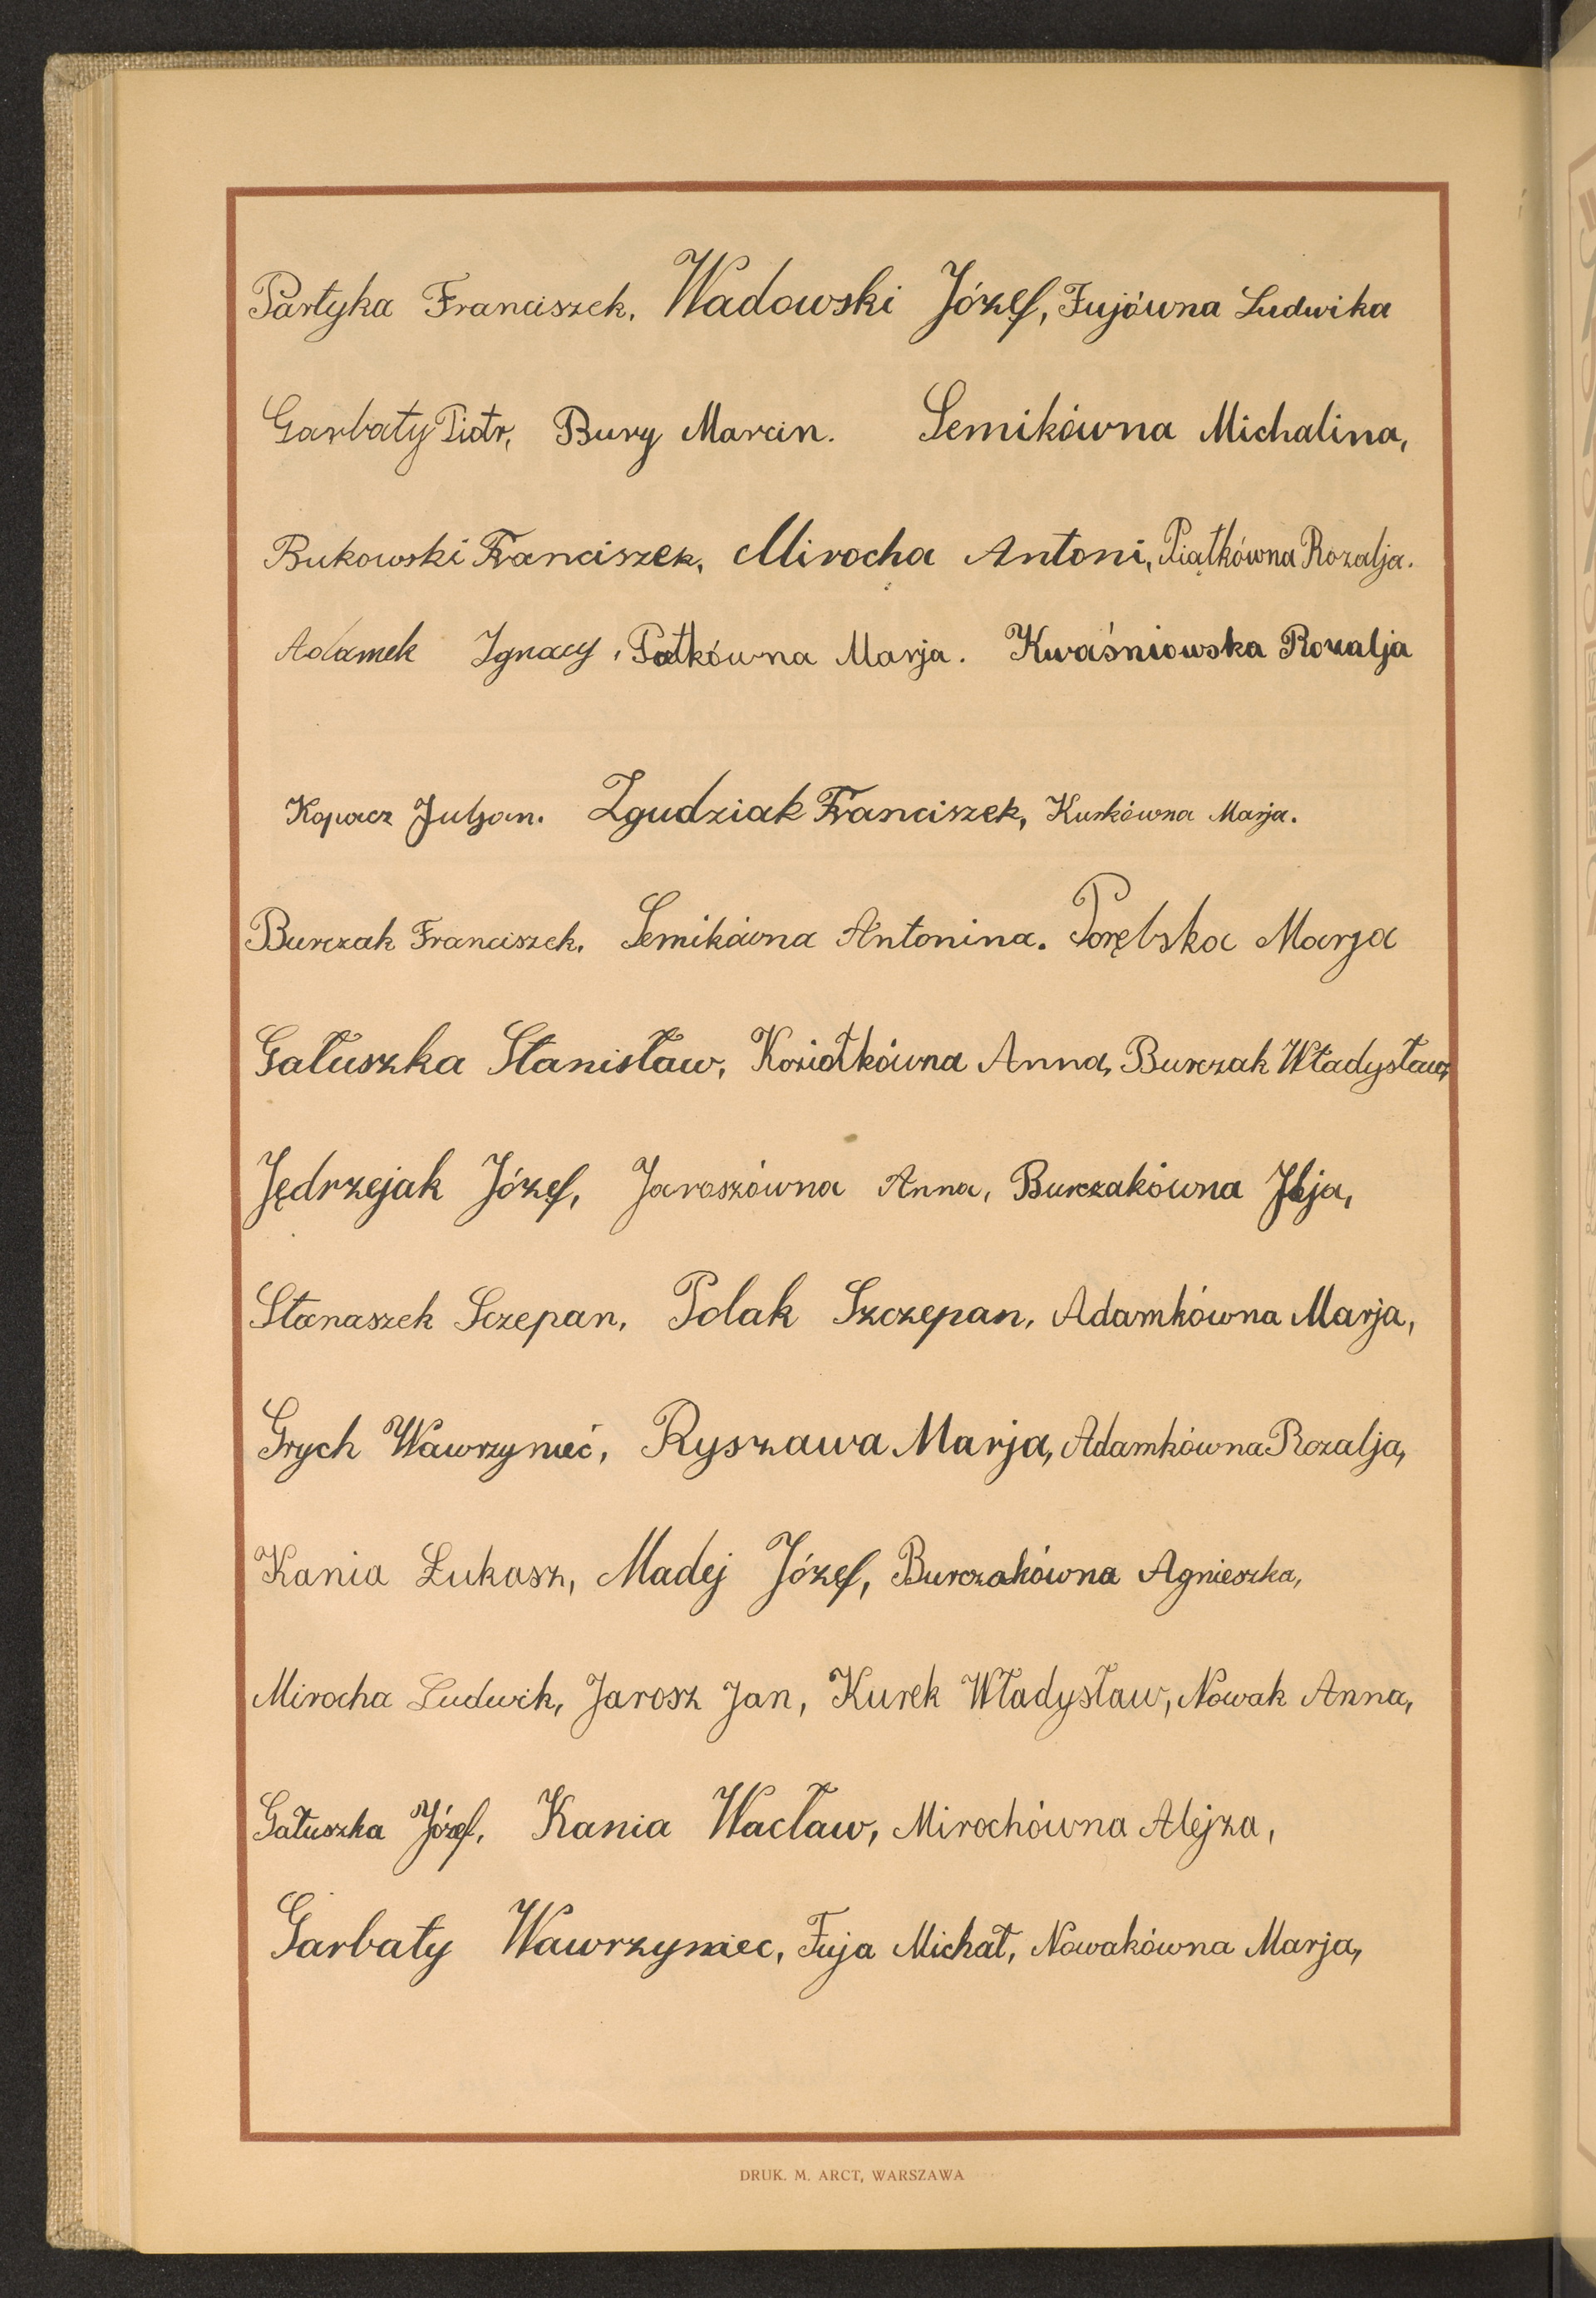 Partyka Franciszek, Wadowski Józef, Fujówna Ludwika
Garbaty Piotr, Bury Marcin. Semikówna Michalina,
Bukowski Franciszek, Mirocha Antoni, Piątkówna Rozalja.
Adamek Ignacy, Patkówna Marja. Kwaśniowska Rozalja
Kopacz Juljan. Zgudziak Franciszek, Kurkówna Marja.
Burczak Franciszek. Semikówna Antonina. Porębska Marja
Gałuszka Stanisław, Koziołkówna Anna, Burczak Władysław,
Jędrzejak Józef, Jaroszówna Anna, Burczakówna
Stanaszek Sczepan, Polak Szczepan, Adamkówna Marja,
Grych Wawrzynieć, Ryszawa Marja, Adamkówna Rozalja,
Kania Łukasz, Madej Józef, Burczakówna Agnieszka,
Mirocha Ludwik, Jarosz Jan, Kurek Władysław, Nowak Anna,
Gałuszka Józef, Kania Wacław, Mirochówna Alejza,
Garbaty Wawrzyniec, Fuja Michał, Nowakówna Marja,
DRUK. M. ARCT, WARSZAWA